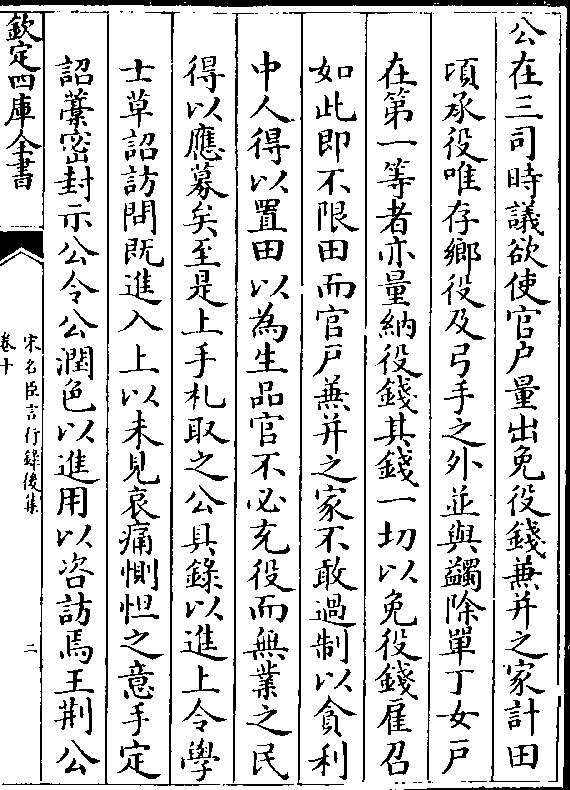 公在三司時議欲使官户量出免役錢兼并之家計田
頃承役唯存鄉役及弓手之外並與蠲除單丁女戸
在第一等者亦量納役錢其錢一切以免役錢雇召
如此即不限田而官戸兼并之家不敢過制以貪利
中人得以置田以為生品官不必充役而無業之民
得以應募矣至是上手札取之公具錄以進上令學
士草詔訪問既進入上以未見哀痛惻怛之意手定
詔藁密封示公令公潤色以進用以咨訪焉王荆公
欽定四庫全書
宋名臣言行錄後集
卷十
二